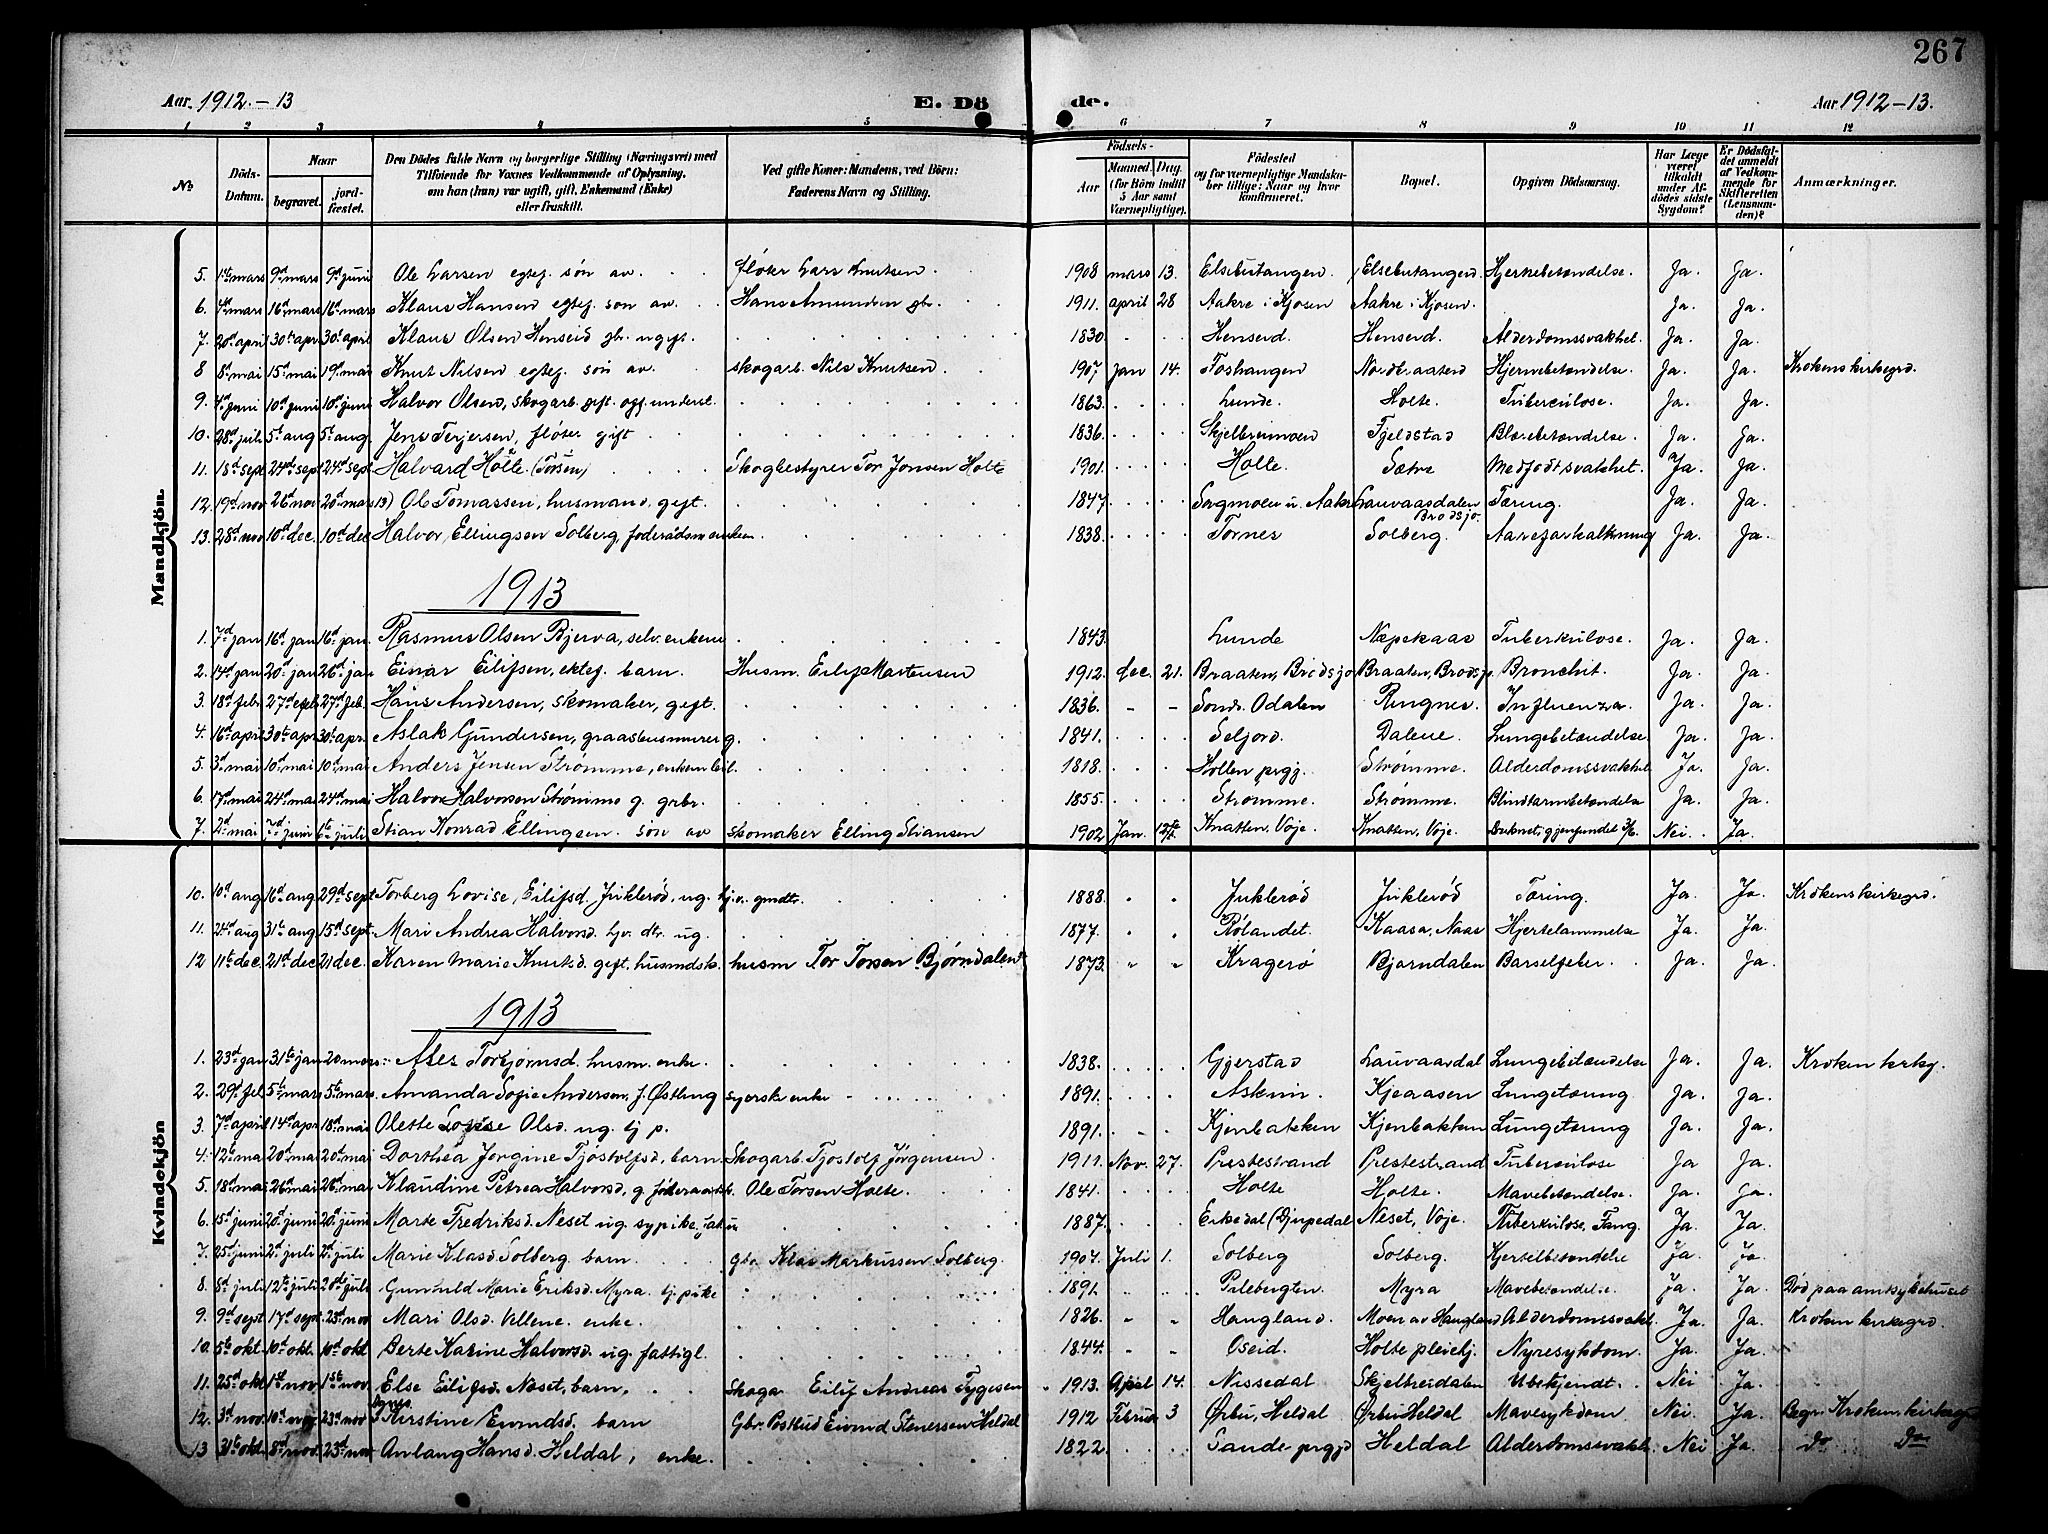 267
Aar 1912.-13 E. Dö de. Aar 1912-13.
1 2 3 4 5 6 7 8 9 10 11 12
No Döds-Datum. Naar begravet. jord-fæstet. Den Dödes fulde Navn og borgerlige Stilling (Næringsvei) med Tilføiende for Voxnes Vedkommende af Oplysning, om han (hun) var ugift, gift, Enkemand (Enke) eller fraskilt. Ved gifte Koner: Mandens, ved Börn: Faderens Navn og Stilling. Födsels- Aar Maaned. Dag. (for Börn indtil 5 Aar samt Værnepligtige). Födested og for værnepligtige Mandskaber tillige: Naar og hvor konfirmeret. Bopæl. Opgiven Dödsaarsag. Har Læge været tilkaldt under Afdödes sidste Sygdom? Er Dödsfaldet anmeldt af Vedkommende for Skifteretten (Lensmanden)? Anmærkninger.
Mandkjön.
5. 1ste mars 9de mars 9de juni Ole Larsen egtef. søn av fløter Lars Knutsen 1908 mars 13. Elsebutangen. Elsebutangen. Hjernebetændelse. Ja. Ja.
6. 4de mars 16de mars 16de mars Klaus Hansen egtef. søn av Hans Amundsen gbr. 1911. april 28 Aakre i Kjosen Aakre i Kjosen. Ja. Ja.
7. 20de april 30te apr. 30te april Klaus Olsen Henseid gbr. ugift. 1830. Henseid. Henseid. Alderdomssvakhet. Ja. Ja.
8 8de mai 15de mai 19de mai Knut Nilsen egtef. søn av. skogarb. Nils Knutsen. 1907. jan 14. Foshaugen Nordbraaten Hjernebetændelse. Ja. Ja. Krokens kirkegrd.
9. 4de juni 10de juni 10de juni Halvor Olsen, skogarb. gift. off. underst. 1863. Lunde. Holte. Tuberculose. Ja. Ja.
10. 28de juli 5te aug 5te aug. Jens Terjersen, fløter gift 1836. Skjelbreimoen Fjeldstad Blærebetændelse. Ja. Ja.
11. 18de sept 24de sept 24de sept Halvard Holte. (Torsen) Skogbestyrer Tor Jonsen Holte 1901. Holte. Sætre Medfødt svakhet. Ja. Ja.
12. 19de nov. 26de nov 20de mars 13) Ole Tomassen, husmand, gift. 1847. Sagmoen u. Aakre Lauvaasdalen Brødsjø. Tæring. Ja. Ja.
13. 28de nov 10de dec. 10de dec Halvor Ellingsen Solberg, føderådsm. enkem 1838. Tornes Solberg. Aareforkalkning Ja. Ja.
1913
1. 7de jan 16de jan 16de jan. Rasmus Olsen Bjerva, selv. enkem 1843. Lunde Næpekaas Tuberkulose. Ja. Ja.
2. 14de jan 20de jan 26de jan Einar Eilifsen, ektef. barn. Husm. Eilif Mortensen 1912. dec. 21. Braaten, Brødsjø Braaten, Brødsjø. Bronchit. Ja. Ja.
3. 18de febr. 27de febr. 27de feb. Hans Andersen, skomaker, gift. 1836. Sondr. Odalen Ringnes. Influenza Ja. Ja.
4. 16de april 30te apr 30te apr. Aslak Gundersen, graastensmurer g. 1841. Seljord. Dalene Lungebetændelse Ja. Ja.
5. 3de mai 10de mai 10de mai Anders Jensen Strømme, enkem 1818. Hollen prgj. Strømme. Alderdomssvakhet Ja. Ja.
6. 17de mai 24de mai 24de mai Halvor Halvorsen Strømme g. grbr. 1855. Strømme. Strømme. Blindtarmbetændelse Ja. Ja.
7. 2de mai 7de juni 6te juli Stian Konrad Ellingsen. søn av skomaker Elling Stiansen 1902 Jan. 12te Knatten, Voje. Knatten, Voje. Druknet, gjenfundet 3/6. Nei. Ja.
Kvindekjön
10. 10de aug 16de aug 29de sept Torberg Lovise, Eilifsd. Juklerød, ug. hj.v. gmdt. 1888. Juklerød Juklerød Tæring. Ja. Ja. Krokens kirkegrd.
11. 24de aug 31te aug 15de sept. Mari Andrea Halvorsd. hjv. dtr. ug. 1877. Rølandet. Kaasa, Naas Hjertelammelse Ja. Ja.
12 11te dec. 21de dec 21 dec. Karen Marie Knutsd. gift. husmdsk. husm Tor Torsen Bjørndalen 1873. Kragerø Bjørndalen Barselfeber. Ja. Ja.
1913
1. 23de jan 31te jan 20 mars. Ases Torbjørnsd. husm. enke. 1838. Gjerstad Lauvaasdal Lungebetændelse Ja. Ja. Kroken kirkg.
2. 29de jan 5te mars 5te mars. Amanda Sofie Anderson, f. Østling syerske enke 1891. Askim. Kjeaasen Lungetæring Ja. Ja.
3. 7de april 14de apr 18de mai Oleste Sofie Olsd. ug. tj p. 1891. Kjenbakken Kjenbakken Lungetæring Ja. Ja.
4. 12te mai 20de mai 20de mai Dorthea Jørgine Tjøstolfsd, barn Skogarb. Tjøstolf Jørgensen. 1911. Nov. 27. Prestestrand Prestestrand Tuberculose Ja Ja.
5. 18de mai 26de mai 26de mai Klaudine Petrea Halvorsd, g. føderaadsk. Ole Torsen Holte. 1841. Holte Holte. Mavebetændelse. Ja. Ja.
6. 15de juni 20de juni 20de juni Marte Fredriksd. Neset ug. sypike 1887. Eikedal (Djupedal Neset, Voje. Tuberkulose, Tang. Ja. Ja.
7. 25de juni 2de juli 2de juli Marie Klasd Solberg. barn. Gbr. Klas Markussen Solberg. 1907. Juli 1. Solberg Solberg. Kjertelbetændelse Ja. Ja
8. 8de juli 12te juli 20de juli Gunhuld Marie Eriksd. Myra. tj. pike 1891. Pilebergten. Myra Mavebetændelse. Ja. Ja. Død paa amtsykehuset
9. 9de sept 17de sept. 23de nov Mari Olsd. Vellene. enke. 1826. Haugland. Moen av Haugland Alderdomssvakt. Ja. Ja. Kroken kirkegrd.
10. 5te okt. 10de okt 10de okt Berte Karine Halvorsd. ug. fattigl. 1844. Oseid. Holte pleiehj. Nyresykdom. Ja. Ja.
11. 25de okt 1ste nov. 1ste nov. Else Eilifsd. Neset, barn. Skoga. Eilif Andreas Tygesen 1913. April 14. Nissedal Skjelbreidalen Ubekjendt. Nei Ja.
12. 3de nov. 10de nov 23de nov Agnes Kirstine Eivindsd. barn Gbr. Postbud Eivind Stenersen Heldal 1912 Februar 3 Ørbu, Heldal Ørbu Heldal Mavesykdom. Nei. Ja. Begr. Krokens kirkegr.
13 31te okt. 8de nov. 23de nov. Anlaug Hansd. Heldal, enke. 1822. Sande prgjd Heldal Alderdomssvakh. Nei Ja. Do Do